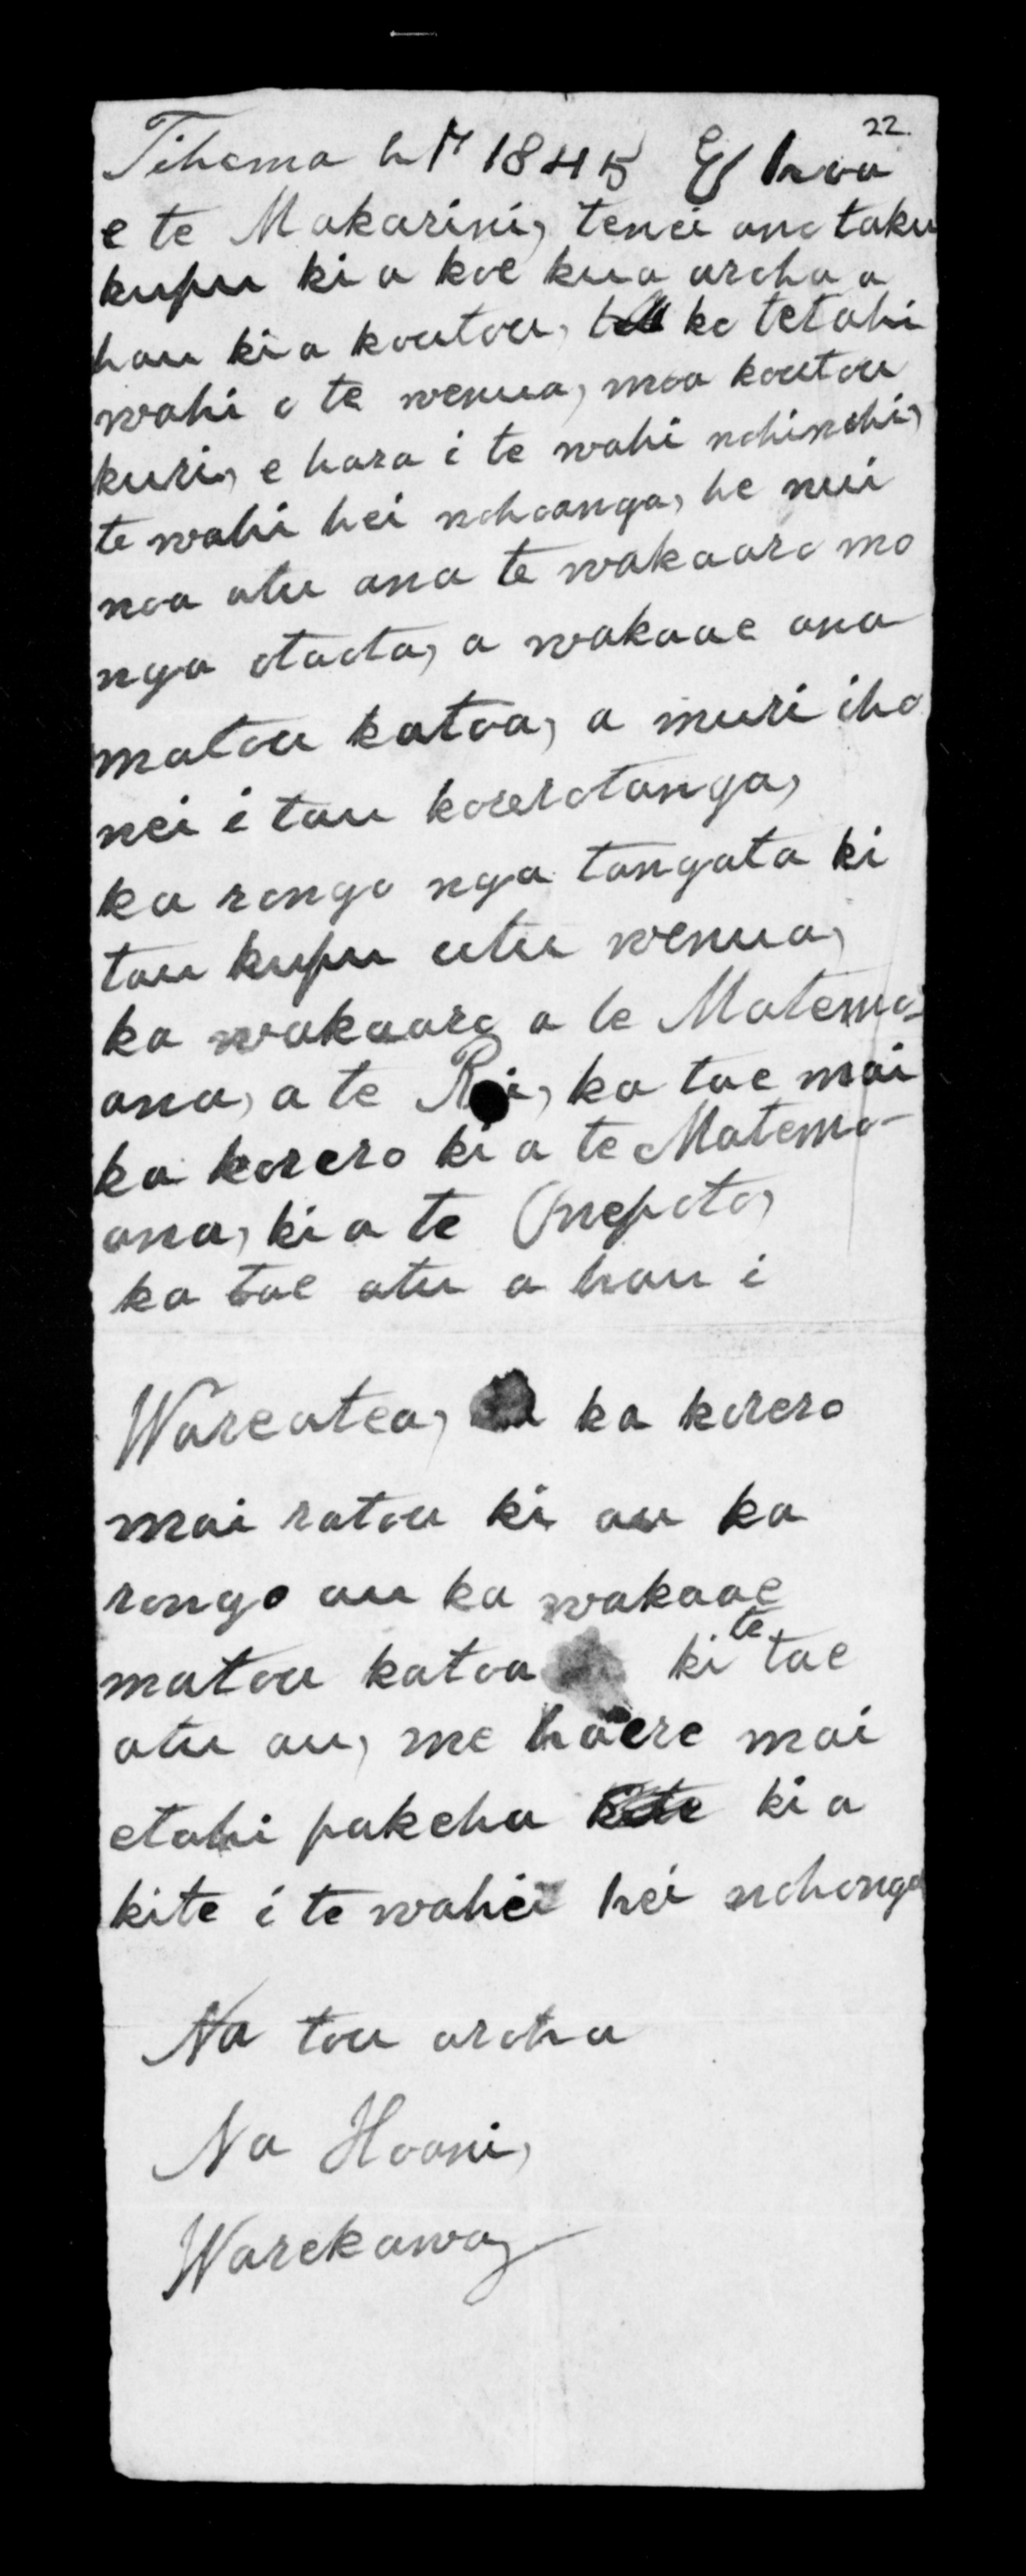 22.
Tihema h 17 1845 E hoa
e te Makarini, tenei ano taku
kupu ki a koe kua aroha a
hau ki a koutou, ko tetahi
wahi o te wenua, moa koutou
kuri, e hara i te wahi nohinohi,
te wahi hei nohoanga, he nui
noa atu ana te wakaaro mo
nga otaota, a wakaae ana
matou katoa, a muri iho
nei i tau korerotanga,
ka rongo nga tangata ki
tau kupu utu wenua,
ka wakaaro a te Matemo-
ana, a te Rei, ka tae mai
ka korero ki a te Matemo-
ana, ki a te Onepoto,
ka tae atu a hau i
Wareatea, ka korero
mai ratou ki au ka
rongo au ka wakaae
matou katoa ki te tae
atu au, me haere mai
etahi pakeha ki a
kite i te wahi hei nohonga
Na tou aroha
Na Hoani,
Warekawa